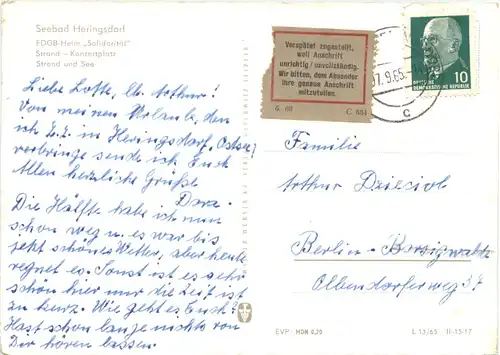 Seebad Heringsdorf
FDGB-Heim „Solidarität"
Strand – Konzertplatz
Strand und See
Liebe Lotte, lb. Arthur!
Von meinem Urlaub, den
ich z.Z. in Heringsdorf, Ostsee,
verbringe sende ich Euch
Allen herzliche Grüße
Dora.
Die Hälfte habe ich nun
schon weg u. es war bis
jetzt schönes Wetter, aber heute
regnet es. Sonst ist es sehr
schön hier nur die Zeit ist
zu kurz. Wie geht es Euch?
Hast schon lange nichts von
Dir hören lassen.
Verspätet zugestellt,
weil Anschrift
unrichtig / unvollständig.
Wir bitten, dem Absender
ihre genaue Anschrift
mitzuteilen.
C 684
9.65
c
10
DEUTSCHE
DEMOKRATISCHE REPUBLIK
Familie
Arthur
Berlin-Borsigwalde
Ollendorferweg 37
EVP MDN 0,20
II-15/17